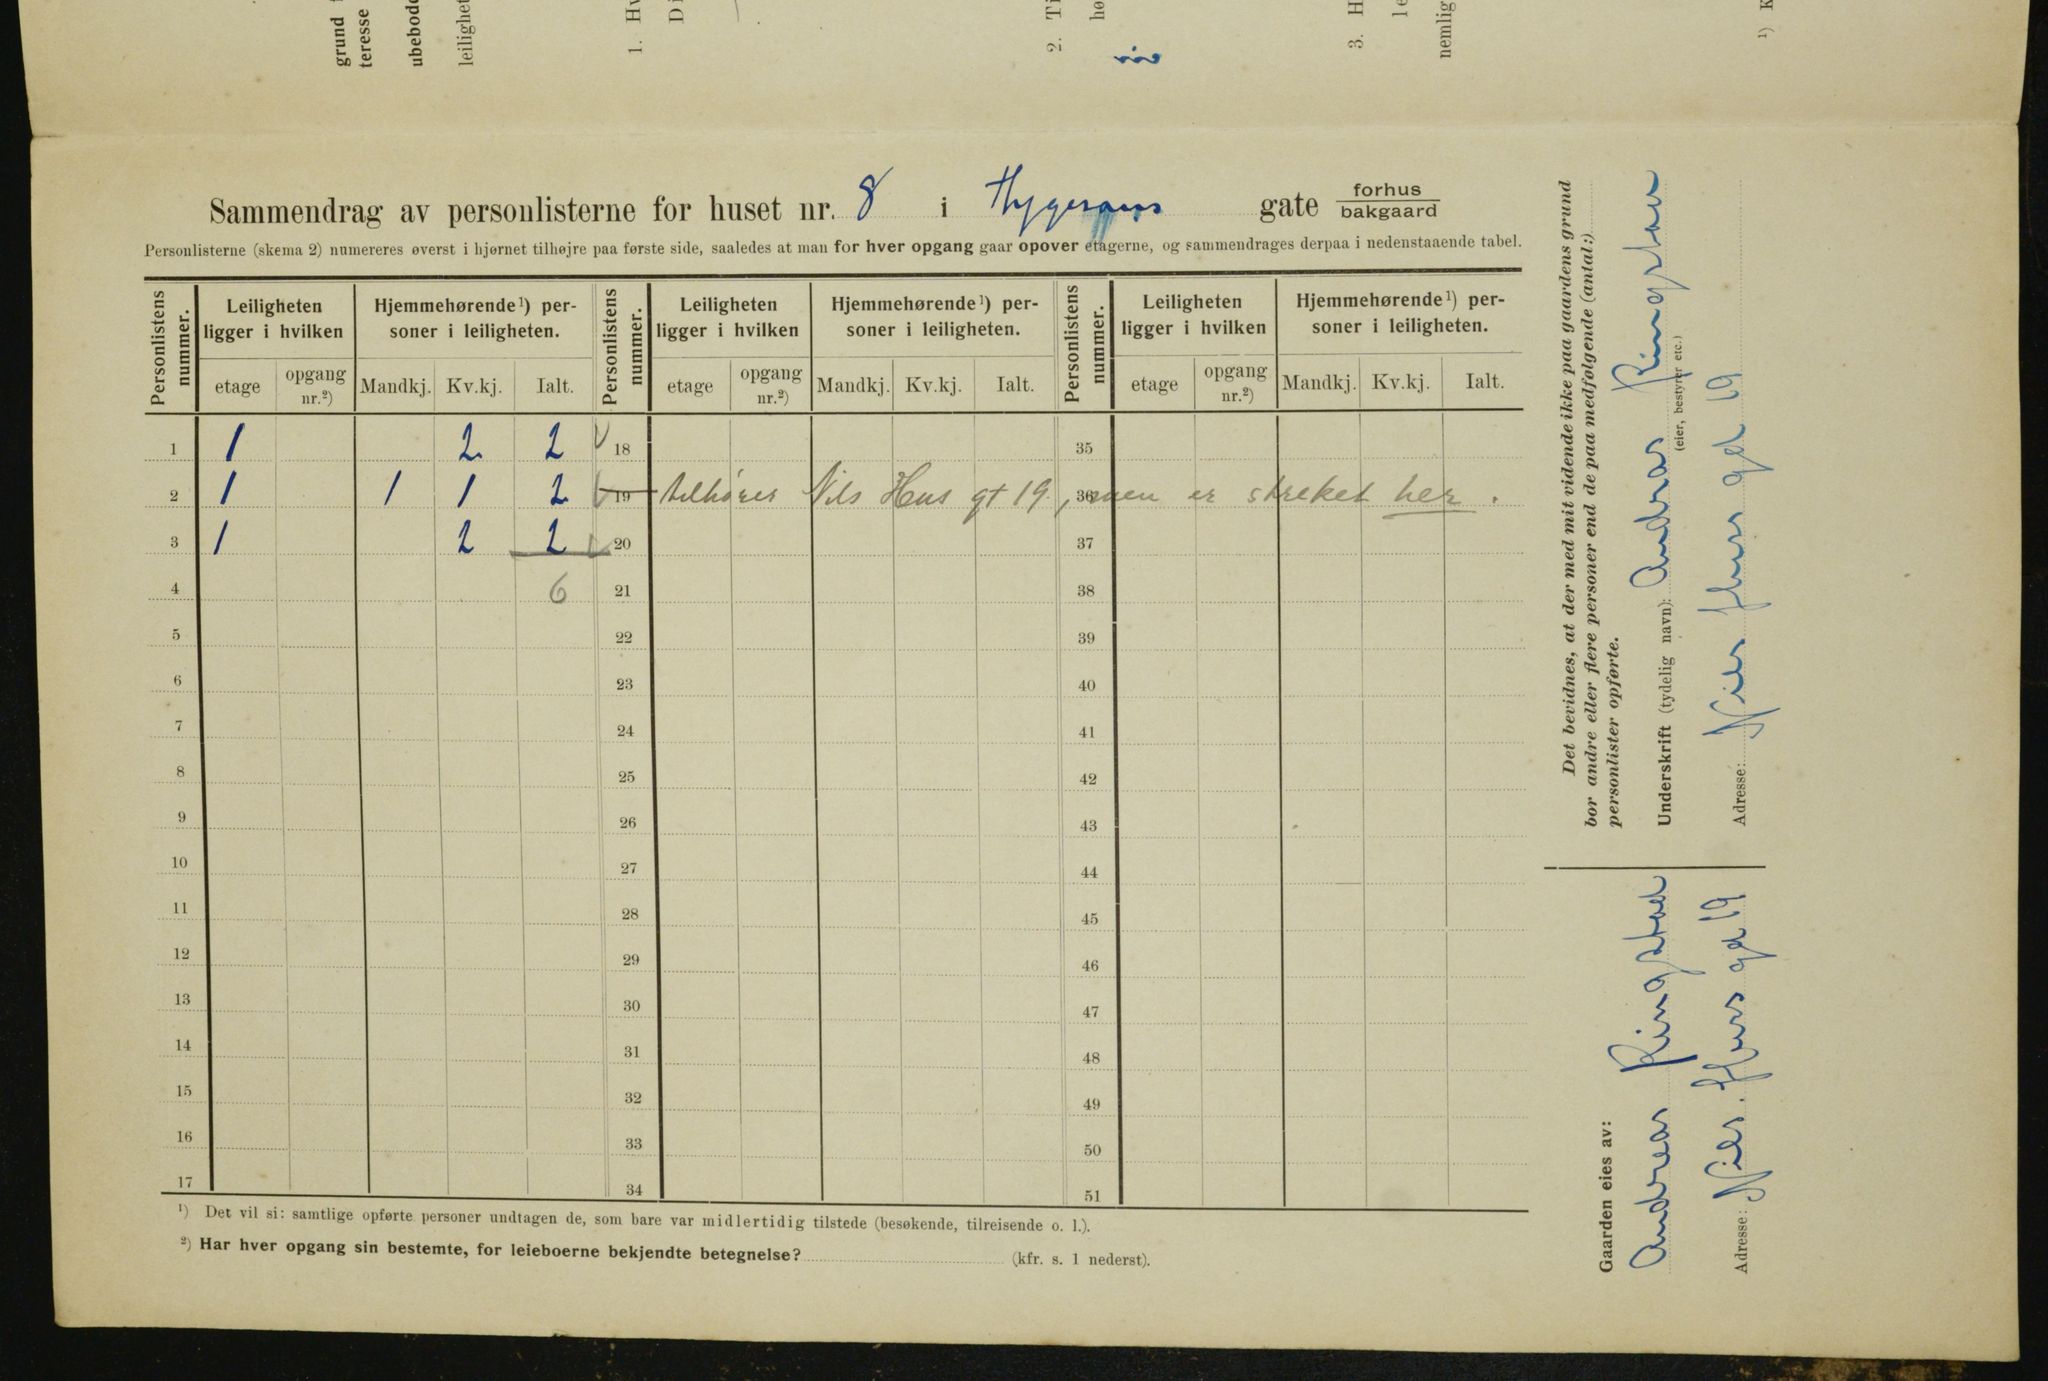 grund
teresse
ubebodd
leilighet
1. Hv
Di
2. Ti
hø
3. H
le
nemlig
¹) K
Sammendrag av personlisterne for huset nr. 8 i gate forhus
bakgaard
Personlisterne (skema 2) numereres øverst i hjørnet tilhøjre paa første side, saaledes at man for hver opgang gaar opover etagerne, og sammendrages derpaa i nedenstaaende tabel.
Personlistens nummer. Leiligheten ligger i hvilken Hjemmehørende¹) personer i leiligheten. Personlistens nummer. Leiligheten ligger i hvilken Hjemmehørende¹) personer i leiligheten. Personlistens nummer. Leiligheten ligger i hvilken Hjemmehørende¹) personer i leiligheten.
etage opgang nr.²) Mandkj. Kv.kj. Ialt. etage opgang nr.²) Mandkj. Kv.kj. Ialt. etage opgang nr.²) Mandkj. Kv.kj. Ialt.
1 1 2 2 18 35
2 1 1 1 2 19 tilhører Nils Hus gt 19, 36 men er streket her.
3 1 2 2 20 37
4 6 21 38
5 22 39
6 23 40
7 24 41
8 25 42
9 26 43
10 27 44
11 28 45
12 29 46
13 30 47
14 31 48
15 32 49
16 33 50
17 34 51
¹) Det vil si: samtlige opførte personer undtagen de, som bare var midlertidig tilstede (besøkende, tilreisende o. l.).
²) Har hver opgang sin bestemte, for leieboerne bekjendte betegnelse? (kfr. s. 1 nederst).
Det bevidnes, at der med mit vidende ikke paa gaardens grund
bor andre eller flere personer end de paa medfølgende (antal:)
personlister opførte.
Underskrift (tydelig navn): Andreas Ringstad
(eier, bestyrer etc.)
Adresse: Nils Hus gd 19
Gaarden eies av:
Andreas Ringstad
Adresse: Nils Hus gd 19